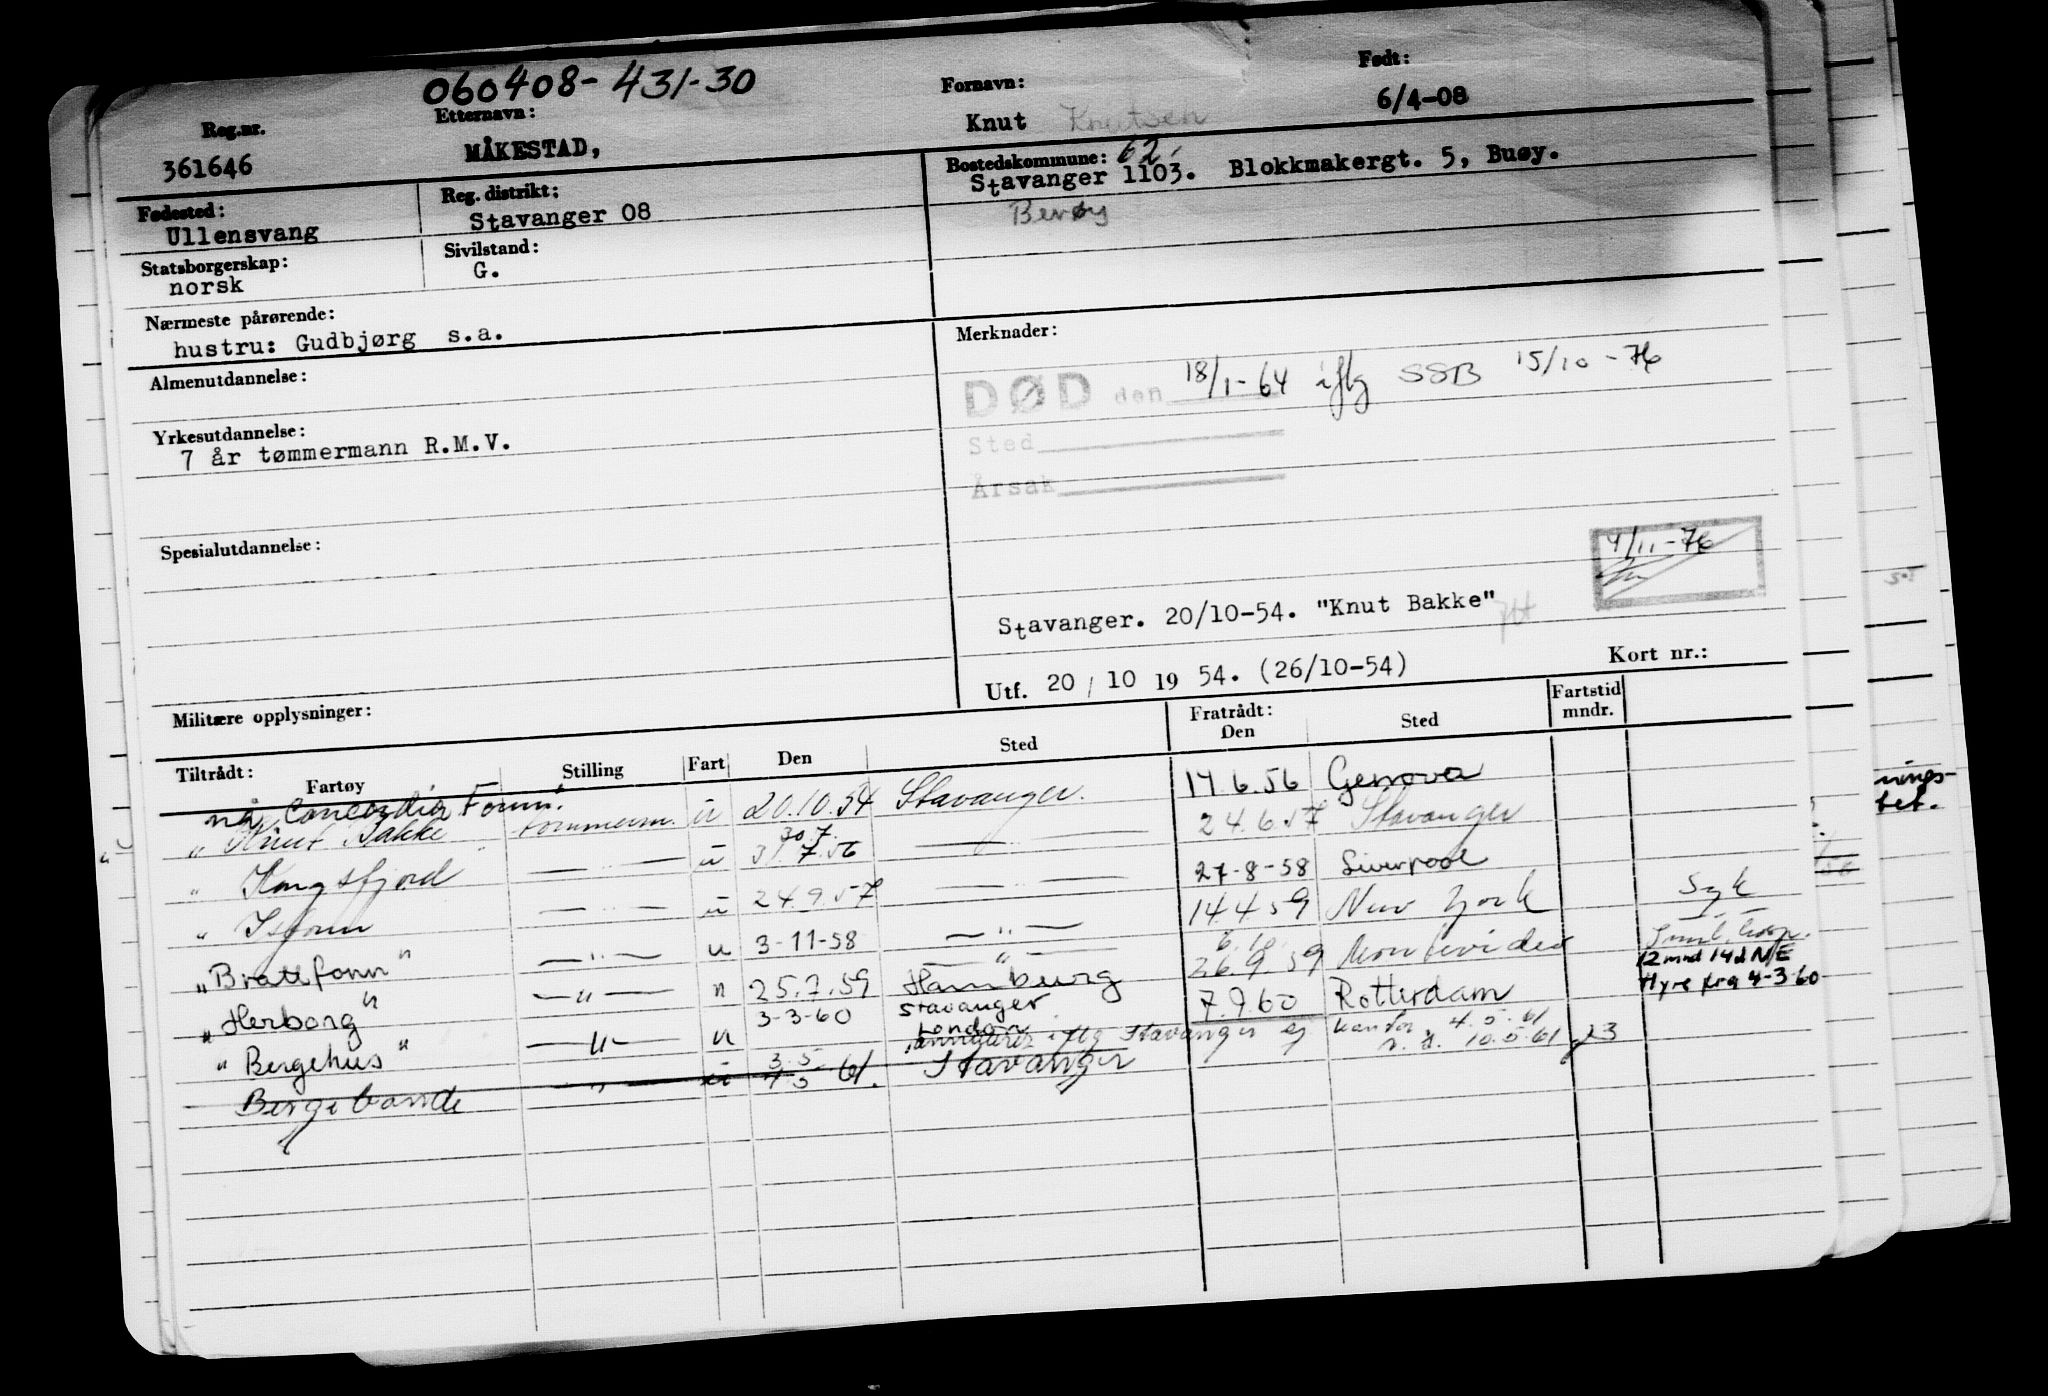 060408-431-30
Reg.nr. Etternavn: Fornavn: Født:
361646 MÅKESTAD, Knut Knutsen 6/4-08
Fødested: Reg. distrikt: Bostedskommune: 62.
Ullensvang Stavanger 08 Stavanger 1103. Blokkmakergt. 5, Buøy.
Statsborgerskap: Sivilstand:
norsk G.
Nærmeste pårørende: Merknader:
hustru: Gudbjørg s.a.
Almenutdannelse: DØD den 18/1-64 iflg SSB 15/10-76
Sted
Yrkesutdannelse:
7 år tømmermann R.M.V. Årsak
Spesialutdannelse: 4/11-76
Stavanger. 20/10-54. "Knut Bakke"
Utf. 20/10 19 54. (26/10-54) Kort nr.:
Militære opplysninger:
Tiltrådt: Fartøy Stilling Fart Den Sted Fratrådt: Den Sted Fartstid mndr.
nå Concordia Fonn.
" Knut Bakke tømmerm. u 20.10.54 Stavanger. 14.6.56 Genova
30.7.
" Kongsfjord — " — u 31.7.56 — 24.6.57 Stavanger
" Isfonn — " — u 24.9.57 — " — 27-8-58 Liverpool
"Brattfonn" — " — u 3-11-58 — " — 14.4.59 New York Syk
"Herborg" — " — " 25.7.59 Hamburg 26.9.59 Montevideo
12 mnd 14d N/E
"Bergehus" — " — u 3-3-60 Stavanger 7.9.60 Rotterdam Hyre fra 4-3-60
London
annullert iflg Stavanger kontor 4.5.61
10.5.61
Bergebonde — " — u 3.5 4.5 61. Stavanger